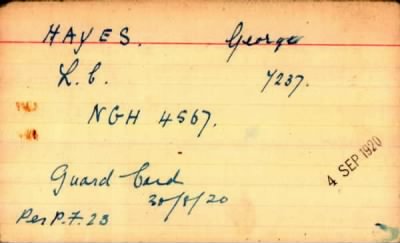 HAYES. George
L.C. 7237.
NGH 4567.
4 SEP 1920
Guard Card
30/8/20
Per P.F. 23